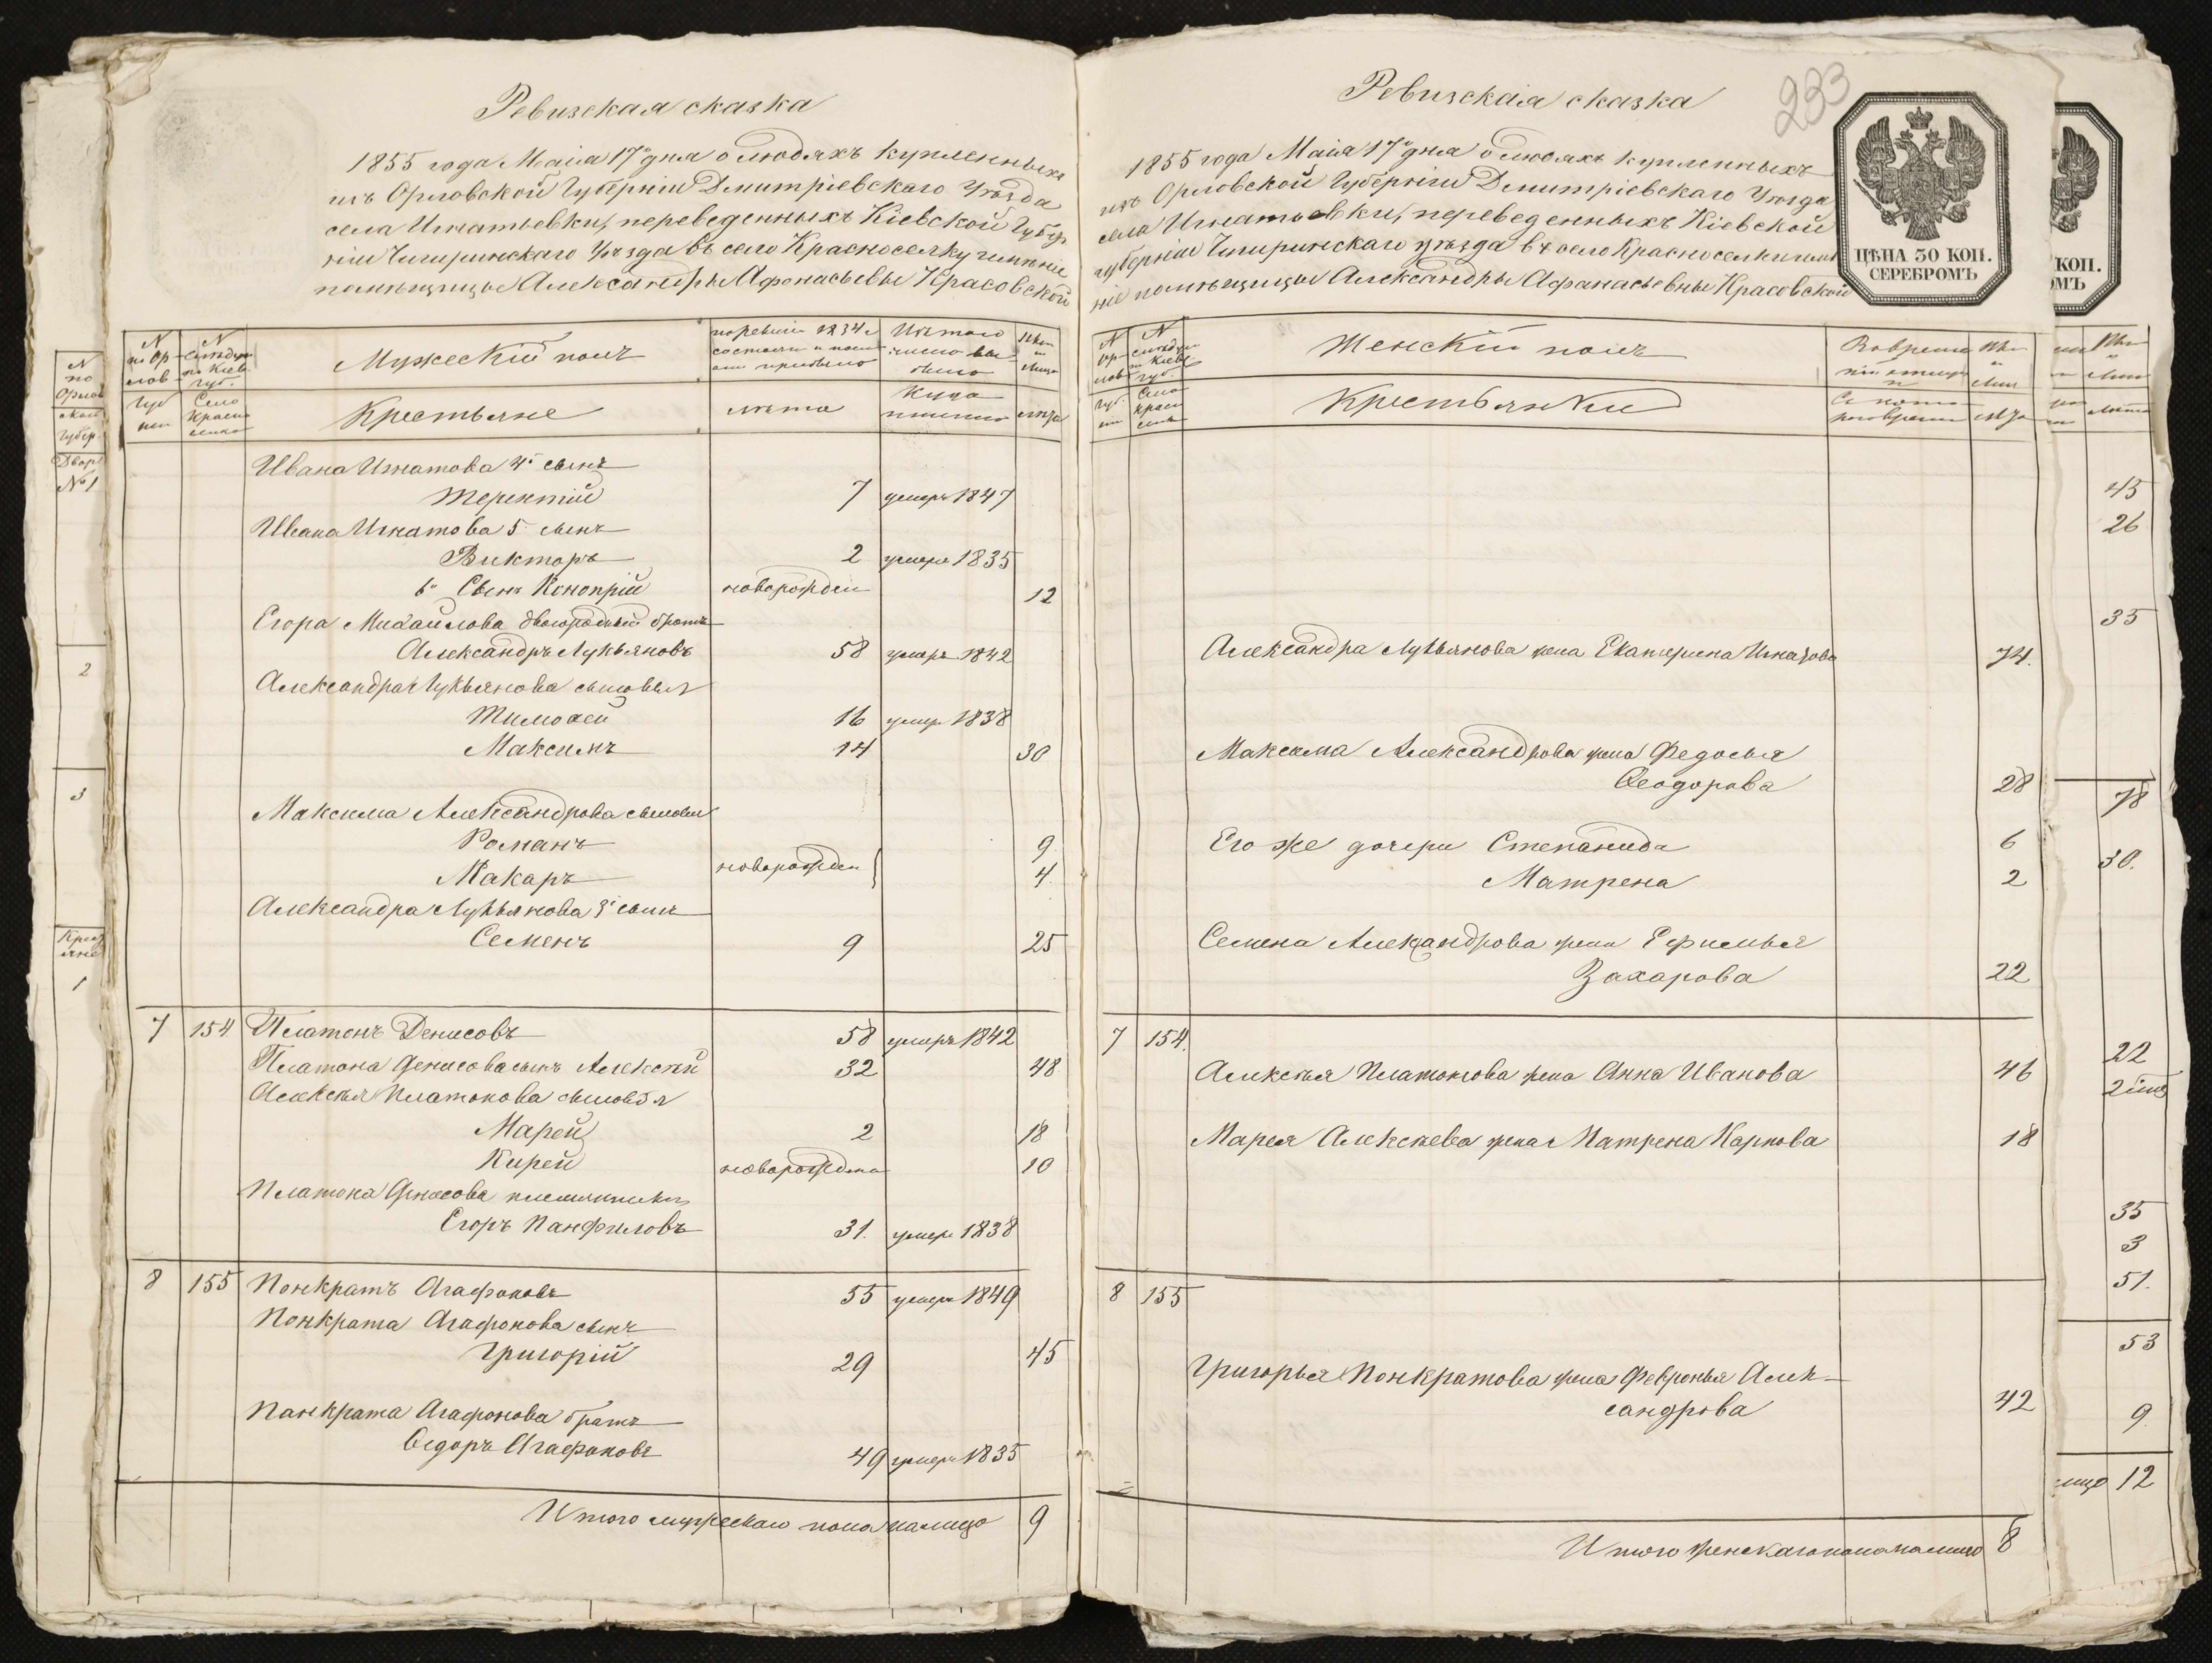 Ревизская сказка
1855 года Маія 17го дня о людяхъ купленныхъ
изъ Орловской Губерніи Дмитріевскаго Уѣзда
села Игнатьевки, переведенныхъ Кіевской Губер
ніи Чигиринскаго Уѣзда въ село Красноселку имѣніе
помѣщицы Александры Афонасьевы Красовской
N по Ор лов Губ
N Кіев губ. Село
Мужескій полъ
по ревизіи 1834
Изъ того числа вы было
Крестьяне
лѣта
Куда
Ивана Игнатова 4й сынъ
Терентій 7 умеръ 1847
Ивана Игнатова 5 сынъ
Викторъ 2 умеръ 1835
6й Сынъ Конопрій новорожден 12
Егора Михайлова двоюродный братъ
Александръ Лукьяновъ 58 умеръ 1842
Александра Лукьянова сыновья
Тимофей 16 умер 1838
Максимъ 14 30
Максима Александрова сыновья
Романъ 9
новорожден
Макаръ 4
Александра Лукьянова 3й сынъ
Семенъ 9 25
7 154 Платонъ Денисовъ 58 умеръ 1842
Платона Денисова сынъ Алексѣй 32 48
Алексѣя Платонова сыновья
Марей 2 18
Кирей новорожден 10
Платона Денисова племянникъ
Егоръ Панфиловъ 31. умеръ 1838
8 155 Понкратъ Агафоновъ 55 умеръ 1849
Понкрата Агафонова сынъ
Григорій 29 45
Панкрата Агафонова братъ
Ѳедоръ Агафоновъ 49 умеръ 1835
Итого мужескаго пола налицо 9
Ревизская сказка
233
1855 года Маія 17го дня о людяхъ купленныхъ
изъ Орловской Губерніи Дмитріевскаго Уѣзда
села Игнатьевки, переведенныхъ Кіевской
губерніи Чигиринскаго уѣзда въ село Красноселку имѣ
ніе помѣщицы Александры Афанасьевны Красовской
ЦѢНА 30 КОП.
СЕРЕБРОМЪ
Женскій полъ
Крестьянки
Александра Лукьянова жена Екатерина Игнатова 74.
Максима Александрова жена Федосья
Ѳеодорова 28
Его же дочери Степанида 6
Матрена 2
Семена Александрова жена Ефимья
Захарова 22
7 154.
Алексѣя Платонова жена Анна Иванова 46
Марея Алексѣева жена Матрена Карпова 18
8 155
Григорья Понкратова жена Февронья Алек-
сандрова 42
Итого женскаго пола налицо 8
КОП.
ОМЪ
45
26
35
78
30.
22
35
3
51.
53
9
лицо 12
N по Орлов ской Губер.
Двор
№ 1
2
3
Крест яне
1